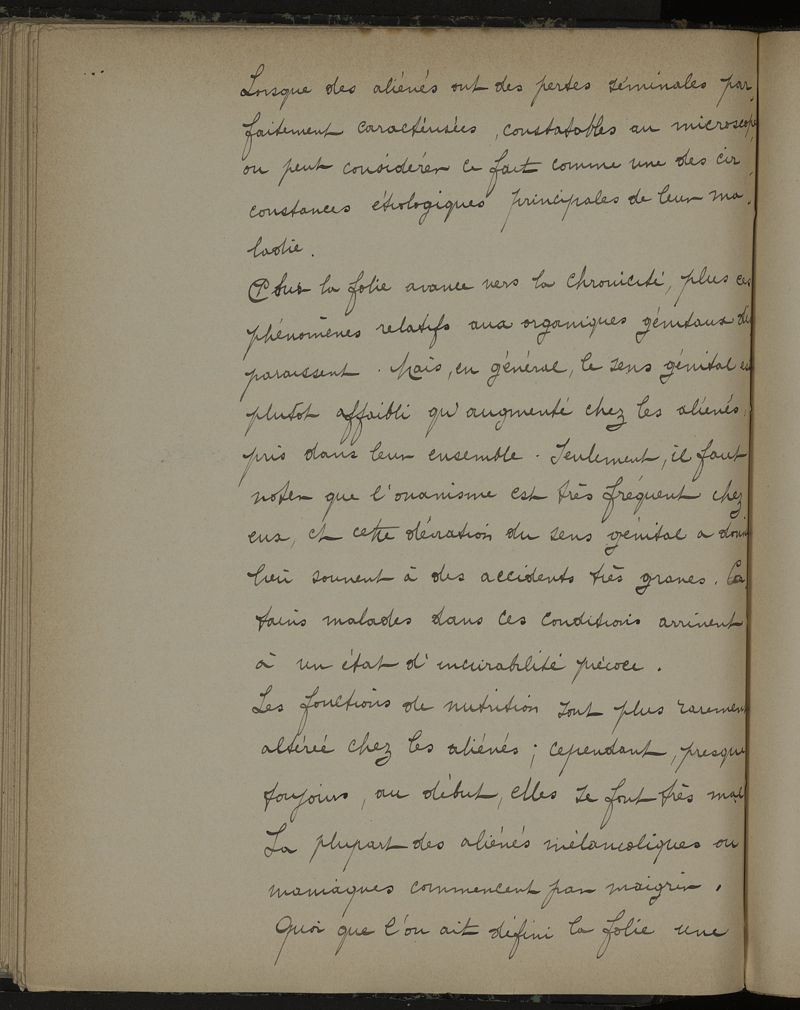 Lorsque des aliénés ont des pertes séminales par
faitement caractérisées, constatables au microscope
on peut considérer ce fait comme une des cir
constances étiologiques principales de leur ma
ladie.
Plus la folie avance vers la chronicité, plus ces
phénomènes relatifs aux organiques génitaux dis
paraissent. Mais, en général, le sens génital est
plutot affaibli qu'augmenté chez les aliénés,
pris dans leur ensemble. Seulement, il faut
noter que l'onanisme est très fréquent chez
eux, et cette déviation du sens génital a donné
lieu souvent à des accidents très graves. Cer
tains malades dans ces conditions arrivent
à un état d'incurabilité précoce.
Les fonctions de nutrition sont plus rarement
altéréé chez les aliénés; cependant, presque
toujours, au début, elles se font très mal
La plupart des aliénés mélancoliques ou
maniaques commencent par maigrir.
Quoi que l'on ait défini la folie une